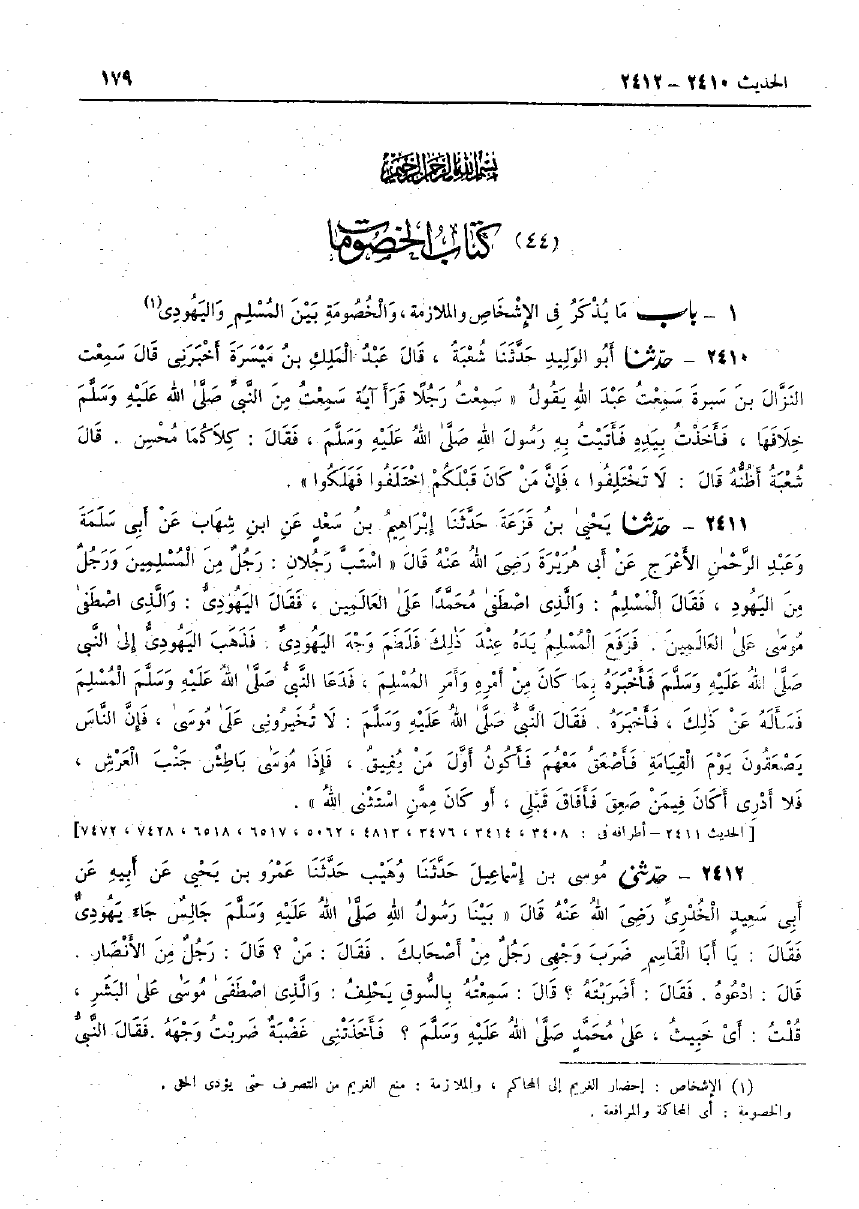 الحديث ٢٤١٠ – ٢٤١٢ ١٧٩
بسم الله الرحمن الرحيم
(٤٤) كتاب الخصومات
١ – باب مَا يُذْكَرُ فى الإِشْخَاصِ والملازمة ، وَالْخُصُومَةِ بَيْنَ المُسْلِمِ وَالْيَهُودِى(١)
٢٤١٠ – حدّثنا أَبُو الوَلِيدِ حَدَّثَنَا شُعْبَةُ ، قَالَ عَبْدُ الْمَلِكِ بنُ مَيْسَرَةَ أَخْبَرَنِى قَالَ سَمِعْت
النَزَّالَ بنَ سَبرةَ سَمِعْتُ عَبْدَ اللهِ يَقُولُ « سَمِعْتُ رَجُلًا قَرَأَ آيَةً سَمِعْتُ مِنَ النَّبِىِّ صَلَّى الله عَلَيْهِ وَسَلَّمَ
خِلَافَهَا ، فَأَخَذْتُ بِيَدِهِ فَأَتَيْتُ بِهِ رَسُولَ اللهِ صَلَّى اللهُ عَلَيْهِ وَسَلَّمَ ، فَقَالَ : كِلَاكُمَا مُحْسِن . قَالَ
شُعْبَةُ أَظُنُّهُ قَالَ : لَا تَخْتَلِفُوا ، فَإِنَّ مَنْ كَانَ قَبْلَكُمْ اخْتَلَفُوا فَهَلَكُوا » .
٢٤١١ – حدّثنا يَحْيىٰ بنُ قَزَعَةَ حَدَّثَنَا إِبْرَاهِيمُ بنُ سَعْدٍ عَنِ ابنِ شِهَاب عَنْ أَبِى سَلَمَةَ
وَعَبْدِ الرَّحْمٰنِ الأَعْرَجِ عَنْ أَبِى هُرَيْرَةَ رَضِىَ اللهُ عَنْهُ قَالَ « اسْتَبَّ رَجُلَانِ : رَجُلٌ مِنَ الْمُسْلِمِينَ وَرَجُلٌ
مِنَ اليَهُودِ ، فَقَالَ الْمُسْلِمُ : وَالَّذِى اصْطَفَىٰ مُحَمَّدًا عَلَىٰ العَالَمِينَ ، فَقَالَ اليَهُودِىُّ : وَالَّذِى اصْطَفَىٰ
مُوسَى عَلَىٰ العَالَمِينَ . فَرَفَعَ الْمُسْلِمُ يَدَهُ عِنْدَ ذٰلِكَ فَلَطَمَ وَجْهَ اليَهُودِىِّ . فَذَهَبَ اليَهُودِىُّ إِلىٰ النَّبِى
صَلَّىٰ اللهُ عَلَيْهِ وَسَلَّمَ فَأَخْبَرَهُ بِمَا كَانَ مِنْ أَمْرِهِ وَأَمْرِ المُسْلِمِ ، فَدَعَا النَّبِىُّ صَلَّى اللهُ عَلَيْهِ وَسَلَّمَ الْمُسْلِمَ
فَسَأَلَهُ عَنْ ذٰلِكَ ، فَأَخْبَرَهُ . فَقَالَ النَّبِىُّ صَلَّىٰ اللهُ عَلَيْهِ وَسَلَّمَ : لَا تُخَيِّرُونِى عَلَىٰ مُوسَىٰ ، فَإِنَّ النَّاسَ
يَصْعَقُونَ يَوْمَ الْقِيَامَةِ فَأَصْعَقُ مَعْهُمَ فَأَكُونُ أَوَّلَ مَنْ يُفِيقُ ، فَإِذَا مُوسَىٰ بَاطِشٌ جَنْبَ الْعَرْشِ ،
فَلَا أَدْرِى أَكَانَ فِيمَنْ صَعِقَ فَأَفَاقَ قَبْلِى ، أَو كَانَ مِمَّنِ اسْتَثْنَى اللهُ » .
[ الحديث ٢٤١١ – أطرافه فى : ٣٤٠٨ ، ٣٤١٤ ، ٣٤٧٦ ، ٤٨١٣ ، ٥٠٦٢ ، ٦٥١٧ ، ٦٥١٨ ، ٧٤٢٨ ، ٧٤٧٢]
٢٤١٢ – حدّثنى مُوسى بن إِسْمَاعِيلَ حَدَّثَنَا وُهَيْب حَدَّثَنَا عَمْرُو بن يَحْيَى عَن أَبِيهِ عَن
أَبِى سَعِيدٍ الْخُدْرِىِّ رَضِىَ اللهُ عَنْهُ قَالَ « بَيْنَا رَسُولُ اللهِ صَلَّىٰ اللهُ عَلَيْهِ وَسَلَّمَ جَالِسٌ جَاءَ يَهُودِىٌّ
فَقَالَ : يَا أَبَا الْقَاسِمِ ضَرَبَ وَجْهِى رَجُلٌ مِنْ أَصْحَابِكَ . فَقَالَ : مَنْ ؟ قَالَ : رَجُلٌ مِنَ الأَنْصَارِ .
قَالَ : ادْعُوهُ . فَقَالَ : أَضَرَبْتَهُ ؟ قَالَ : سَمِعْتُهُ بِالسُّوقِ يَحْلِفُ : وَالَّذِى اصْطَفَىٰ مُوسَى عَلَىٰ البَشَرِ ،
قُلْتُ : أَىْ خَبِيثُ ، عَلىٰ مُحَمَّدٍ صَلَّىٰ اللهُ عَلَيْهِ وَسَلَّمَ ؟ فَأَخَذَتْنِى غَضْبَةٌ ضَرَبْتُ وَجْهَهُ .فَقَالَ النَّبِىُّ
(١) الإشخاص : إحضار الغريم إلى المحاكم ، والملازمة : منع الغريم من التصرف حتى يؤدى الحق .
والخصومة : أى المحاكمة والمرافعة .